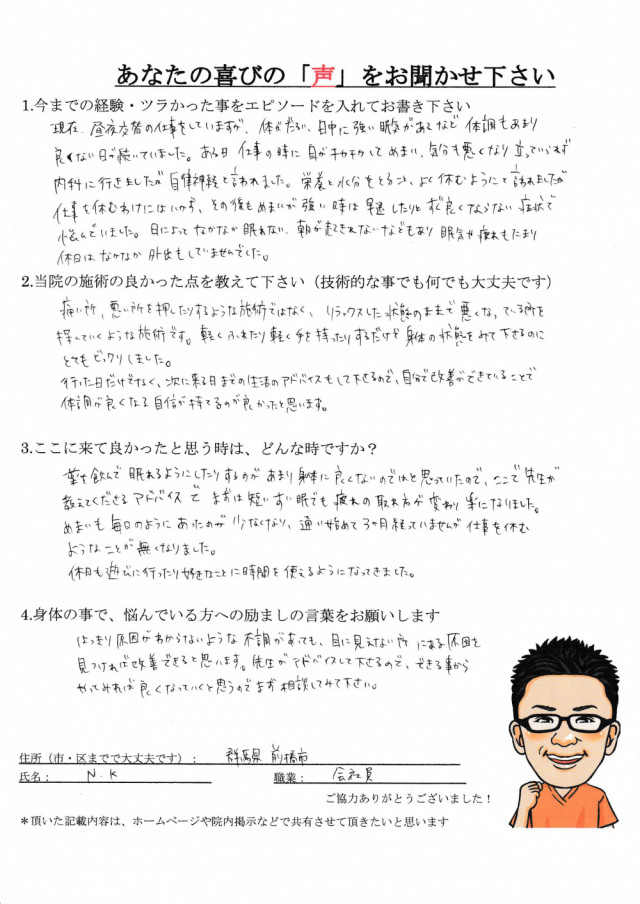 あなたの喜びの「声」をお聞かせ下さい
1.今までの経験・ツラかった事をエピソードを入れてお書き下さい
現在、昼夜交替の仕事をしていますが、体がだるい、日中に強い眠気があるなど体調もあまり
良くない日が続いていました。ある日仕事の時に目がチカチカしてめまい、気分も悪くなり立っていられず
内科に行きましたが自律神経と言われました。栄養と水分をとること、よく休むようにと言われましたが
仕事を休むわけにはいかず、その後もめまいが強い時は早退したりとすぐ良くならない症状で
悩んでいました。日によってなかなか眠れない、朝が起きれないなどもあり眠気や疲れもたまり
休日はなかなか外出もしていませんでした。
2.当院の施術の良かった点を教えて下さい（技術的な事でも何でも大丈夫です）
痛い所、悪い所を押したりするような施術ではなく、リラックスした状態のままで悪くなっている所を
探していくような施術です。軽くふれたり軽く手を持ったりするだけで身体の状態をみて下さるのに
とてもビックリしました。
行った日だけでなく、次に来る日までの生活のアドバイスもして下さるので、自分で改善ができていることで
体調が良くなる自信が持てるのが良かったと思います。
3.ここに来て良かったと思う時は、どんな時ですか？
薬を飲んで眠れるようにしたりするのがあまり身体に良くないのではと思っていたので、ここで先生が
教えてくださるアドバイスでまずは短いすい眠でも疲れの取れ方が変わり楽になりました。
めまいも毎日のようにあったのが少なくなり、通い始めて3ヶ月経っていませんが仕事を休む
ようなことが無くなりました。
休日も遊びに行ったり好きなことに時間を使えるようになってきました。
4.身体の事で、悩んでいる方への励ましの言葉をお願いします
はっきり原因がわからないような不調があっても、目に見えない所にある原因を
見つければ改善できると思います。先生がアドバイスして下さるので、できる事から
やってみれば良くなっていくと思うのでまず相談してみて下さい。
住所（市・区までで大丈夫です）： 群馬県 前橋市
氏名： N.K 職業： 会社員
ご協力ありがとうございました！
＊頂いた記載内容は、ホームページや院内掲示などで共有させて頂きたいと思います